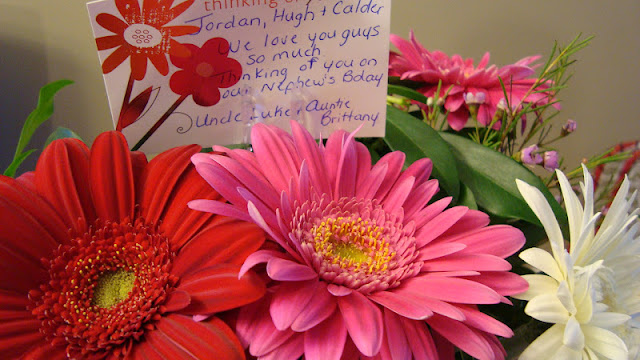 thinking of
Jordan, Hugh & Calder
We love you guys
so much
Thinking of you on
our Nephew's Bday
Uncle Luke & Auntie
Brittany